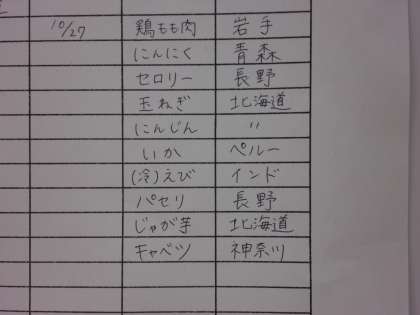 10/27 鶏もも肉 岩手
にんにく 青森
セロリー 長野
玉ねぎ 北海道
にんじん 〃
いか ペルー
(冷)えび インド
パセリ 長野
じゃが芋 北海道
キャベツ 神奈川